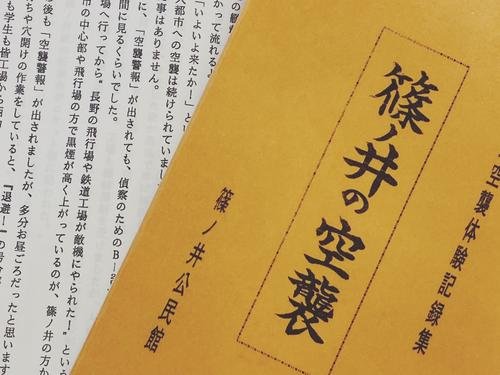 空襲体験記録集
篠ノ井の空襲
篠ノ井公民館
かって流れる
「いよいよ来たか！」とい
大都市への空襲は続けられていまし
事はありません。
に、「空襲警報」が出されても、偵察のためのB－
間に見るくらいでした。
場へ行ってから。長野の飛行場や鉄道工場が敵機にやられた！」という
市の中心部や飛行場の方で黒煙が高く上がっているのが、篠ノ井の方か
後も「空襲警報」が出されましたが、多分お昼ごろだったと思います
ちや穴開けの作業をしていると、『退避！』の号
も学生も皆工場から